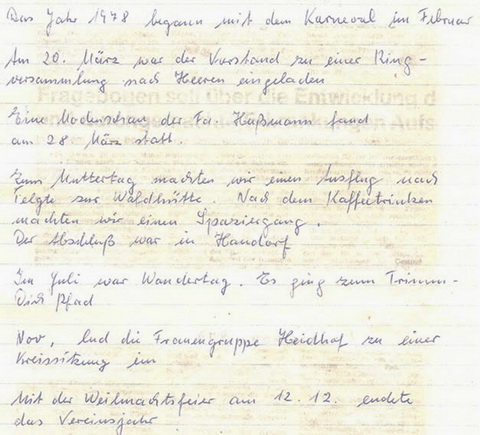 Das Jahr 1978 begann mit dem Karneval im Februar
Am 20. März war der Vorstand zu einer Ring-
versammlung nach Heeren eingeladen
Eine Modenschau der Fa. Haßmann fand
am 28 März statt.
Zum Muttertag machten wir einen Ausflug nach
Telgte zur Waldhütte. Nach dem Kaffeetrinken
machten wir einen Spaziergang.
Der Abschluß war in Handorf
Im Juli war Wandertag. Es ging zum Trimm-
Dich Pfad
Nov, lud die Frauengruppe Heidhof zu einer
Kreissitzung ein
Mit der Weihnachtsfeier am 12.12. endete
das Vereinsjahr
Fragebogen soll über die Entwicklung d